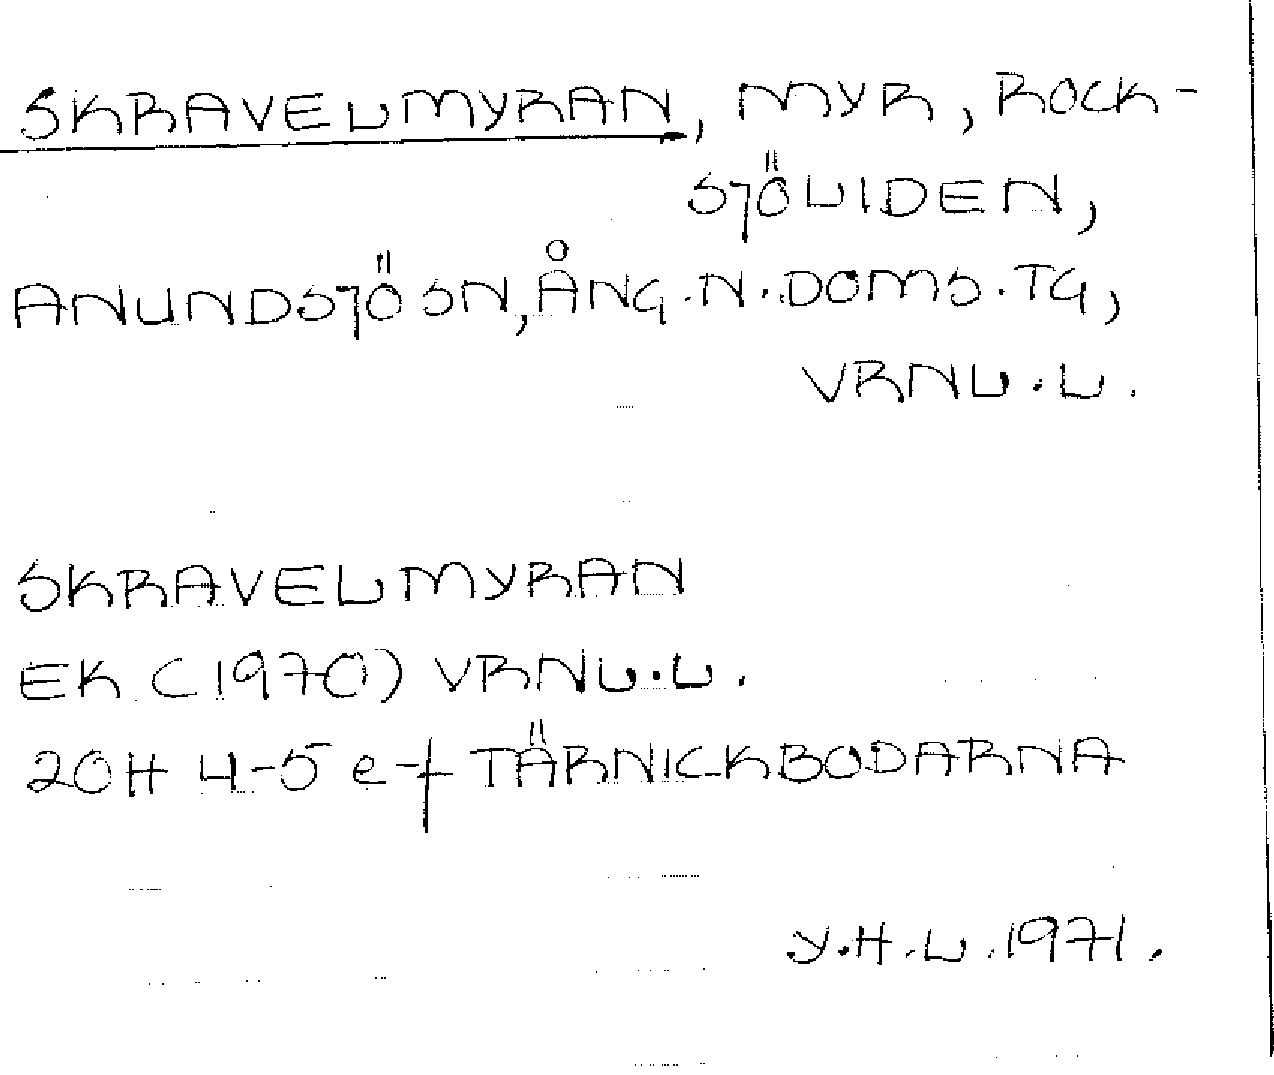 SKRAVELMYRAN, MYR, ROCK-
SJÖLIDEN,
ANUNDSJÖ SN, ÅNG. N. DOMS. TG,
VRNL. L.
SKRAVELMYRAN
EK (1970) VRNL. L.
20H 4-5 e-f TÄRNICKBODARNA
Y.H.L. 1971.